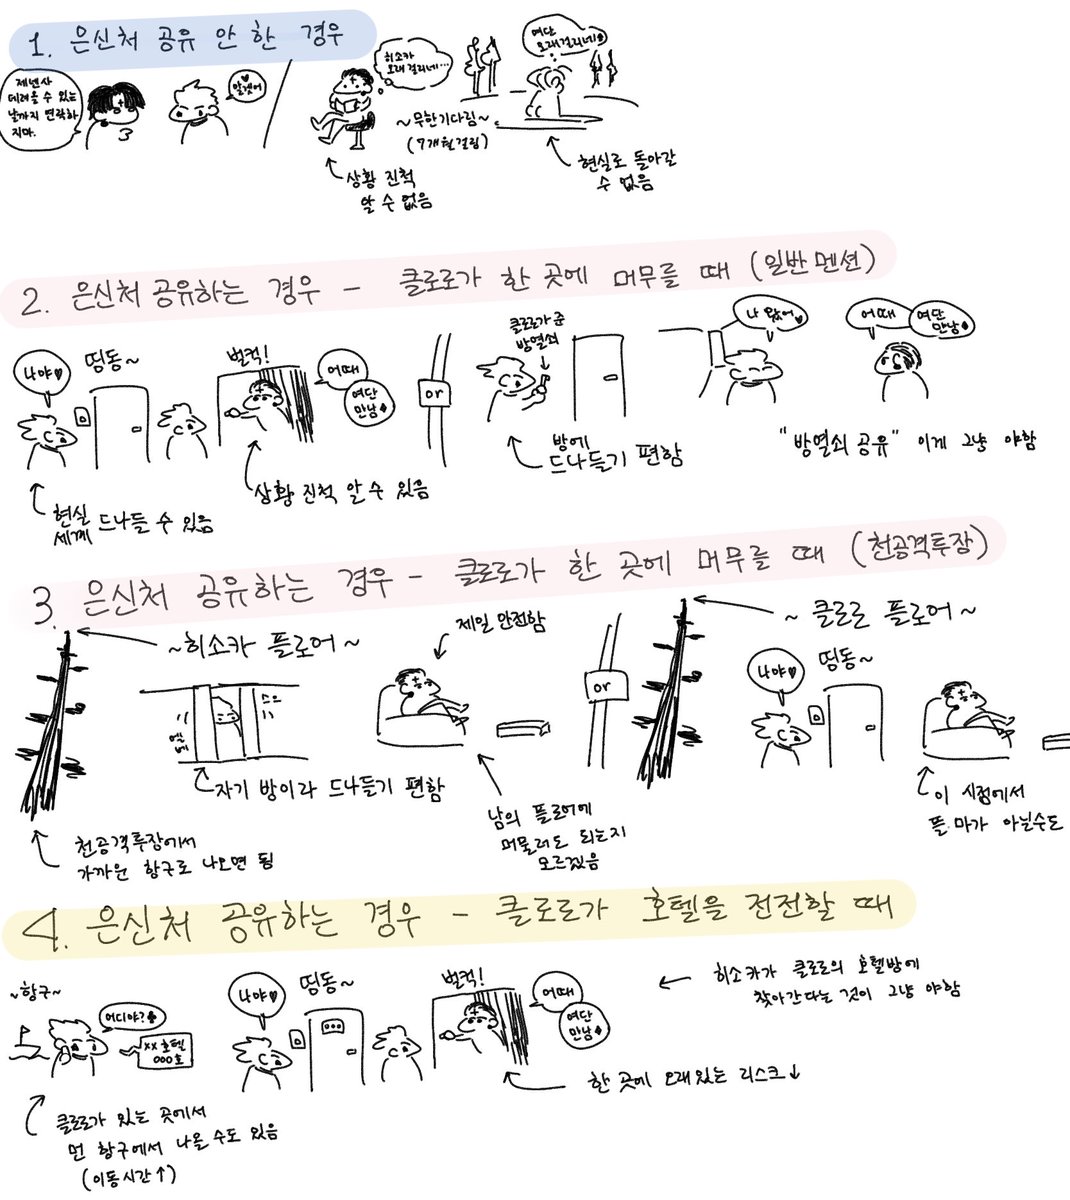 1. 은신처 공유 안 한 경우
제녠사
데려올 수 있는
날까지 연락하
지마.
알겠어
히소카
오래 걸리네...
~무한기다림~
(7개월걸림)
여단
오래걸리네♠
상황 진척
알 수 없음
현실로 돌아갈
수 없음
2. 은신처 공유하는 경우 - 클로로가 한 곳에 머무를 때 (일반멘션)
나야♥
띵동~
벌컥!
어때
여단
만남♦
현실
세계 드나들 수 있음
상황 진척 알 수 있음
or
클로로가 준
방열쇠
방에
드나들기 편함
나 왔어♥
어때
여단
만남♦
"방열쇠 공유" 이게 그냥 야함
3. 은신처 공유하는 경우 - 클로로가 한 곳에 머무를 때 (천공격투장)
~히소카 플로어~
제일 안전함
자기 방이라 드나들기 편함
천공격투장에서
가까운 항구로 나오면 됨
남의 플로어에
머물러도 되는지
모르겠음
or
~클로로 플로어~
나야♥
띵동~
이 시점에서
플.마가 아닐수도
4. 은신처 공유하는 경우 - 클로로가 호텔을 전전할 때
~항구~
어디야?♠
xx 호텔
000호
나야♥
띵동~
벌컥!
어때
여단
만남♦
히소카가 클로로의 호텔방에
찾아간다는 것이 그냥 야함
한 곳에 오래있는 리스크↓
클로로가 있는 곳에서
먼 항구에서 나올 수도 있음
(이동시간↑)